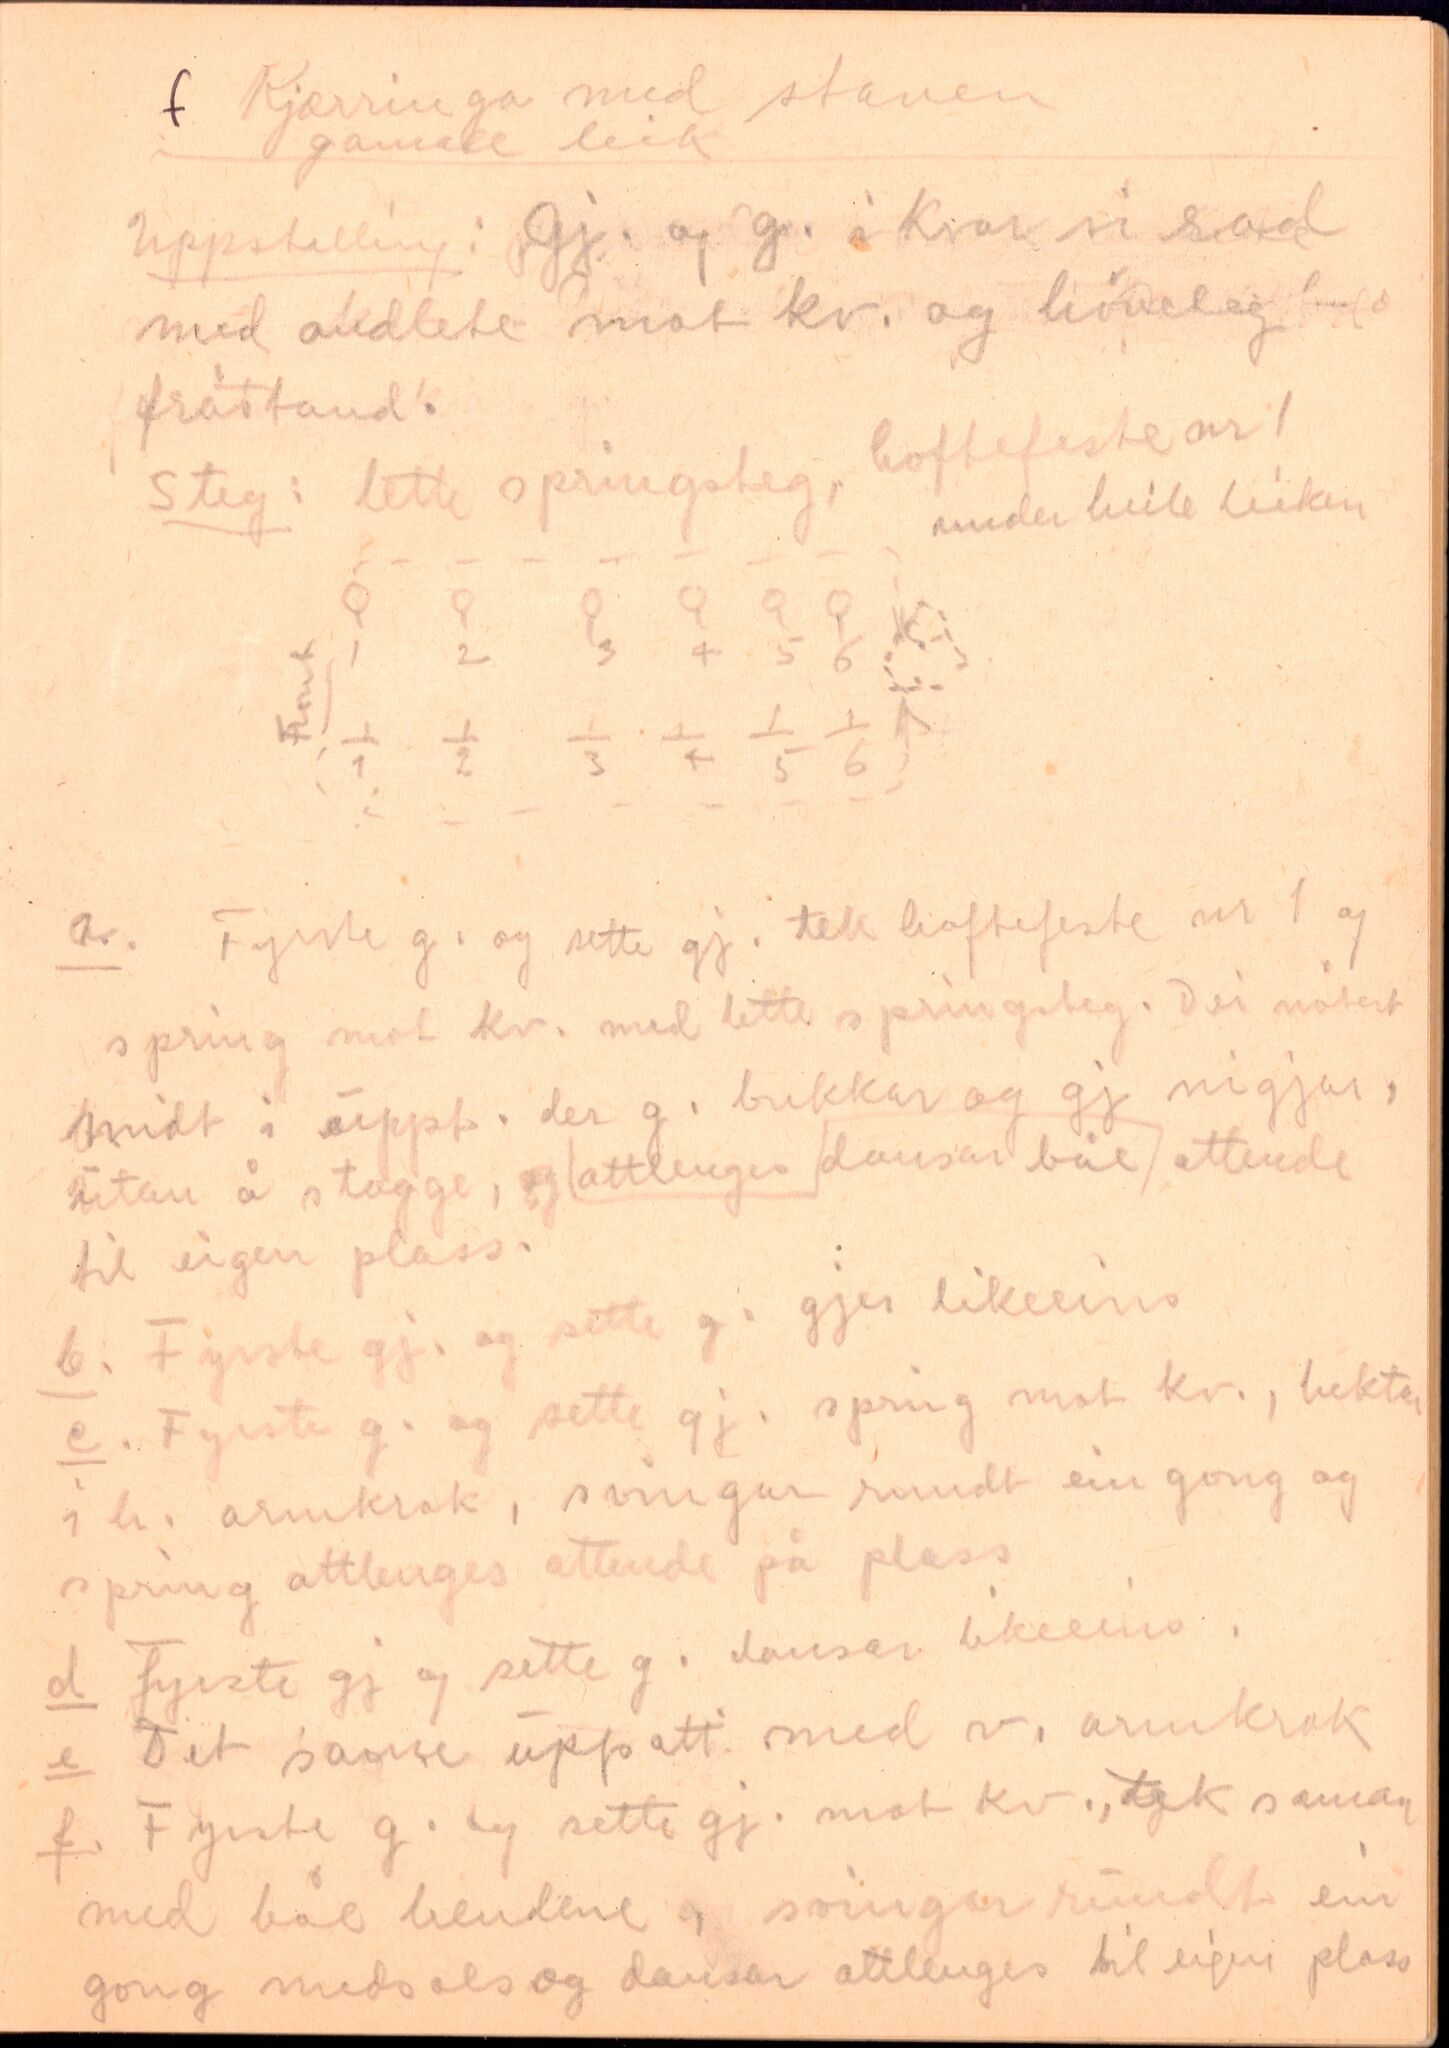 f Kjærringa med staven
gamall leik
Uppstelling: Gj. og g. i kvar si rad
med andlete mot kv. og høveleg
fråstand.
Steg: lette springsteg, hoftefeste nr 1
under heile leiken
1 2 3 4 5 6
Front
1 2 3 4 5 6
a. Fyrste g. og sette gj. tek hoftefeste nr 1 og
spring mot kv. med lette springsteg. Dei møtest
midt i uppst. der g. bukkar og gj nigjar,
utan å stogge, og attlenges dansar båe attende
til eigen plass.
b. Fyrste gj. og sette g. gjer likeeins
c. Fyrste g. og sette gj. spring mot kv., hektar
i h. armkrok, svingar rundt ein gong og
spring attlenges attende på plass
d Fyrste gj og sette g. dansar likeeins.
e Det same uppatt med v. armkrok
f. Fyrste g. og sette gj. mot kv., tek saman
med båe hendene og svingar rundt ein
gong medsols og dansar attlenges til eigen plass